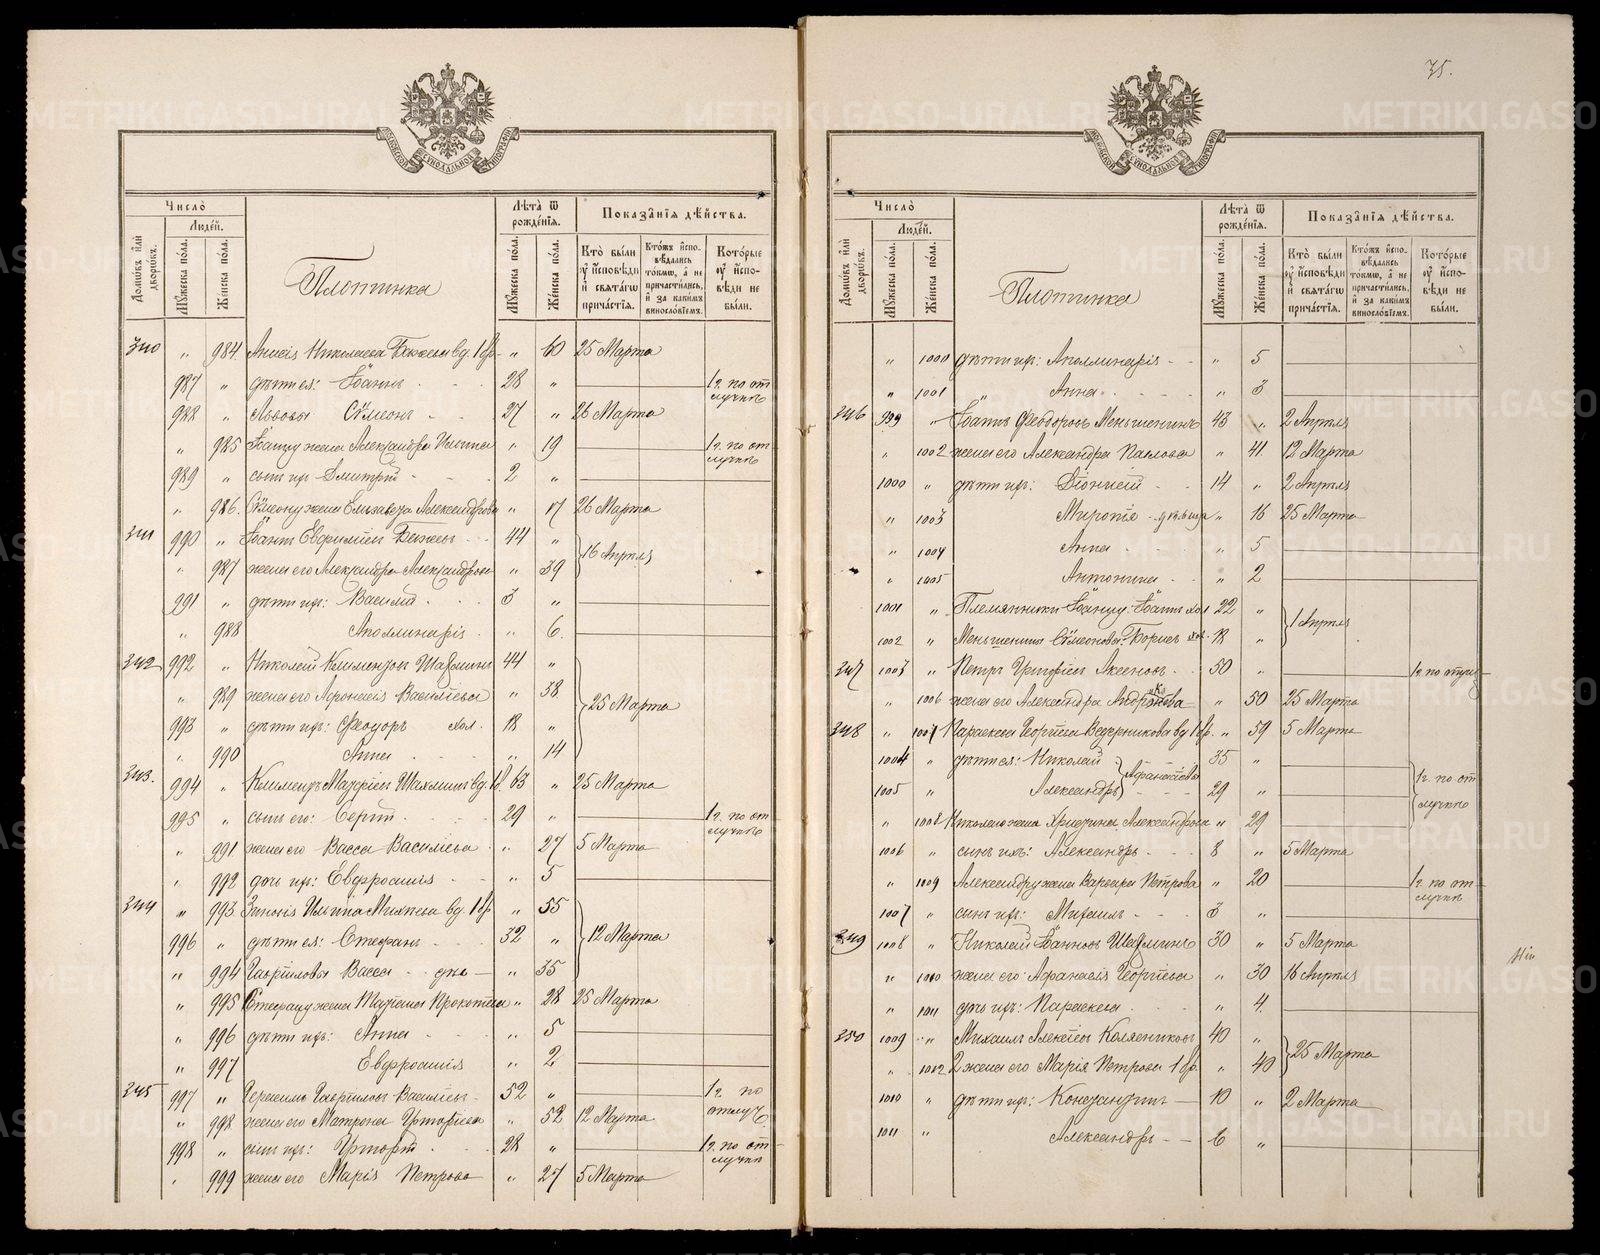 35.
Число̀
Людей.
Лѣта ѿ рождéнїѧ.
Показáнїѧ дѣйства.
Домѡвъ и҆лѝ дворѡвъ.
Мꙋ́жеска пола.
Же́нска пола.
Мꙋ́жеска пола.
Же́нска пола.
Кто̀ бы́ли ᲂу҆ и҆сповѣди и҆ свѧтагѡ причáстїѧ.
Кто́жъ и҆спо-вѣ́дались то́кмѡ, а҆ не причасти́лись, и҆ за каки́мъ винослóвїемъ.
Кото́рые ᲂу҆ и҆спо-вѣди не бы́ли.
Плотинка
340 " 984. Анисія Николаева Бажева вд. 1 бр. " 60 25 Марта
987 " дѣти ея: Іоаннъ 28 " 1 г. по отлучкѣ
988 " Львовы Сѵмеонъ 27 " 26 Марта
" 985 Іоанну жена Александра Ильина " 19 1 г. по отлучкѣ
989 " сынъ ихъ Димитрій 2 "
" 986. Сѵмеону жена Елизавета Александрова " 17 26 Марта
341 990 " Іоаннъ Евѳиміевъ Бажевъ 44 " 16 Апрѣля
" 987 жена его Александра Александрова " 39
991 " дѣти ихъ: Василій 3 "
" 988 Аполлинарія " 6.
342 992 " Николай Климентовъ Шахминъ 44 " 25 Марта
" 989 жена его Афанасія Васильева " 38.
993 " дѣти ихъ: Ѳеодоръ хол. 18 "
" 990 Анна " 14
343. 994 " Климентъ Матѳіевъ Шахминъ вд. 1 б. 63 " 25 Марта
995 " сынъ его: Сергій 29 " 1 г. по отлучкѣ
" 991 жена его Васса Васильева " 27 5 Марта
" 992 дочь ихъ: Евфросинія " 5
344 " 993. Зиновія Ильина вд. 1 бр " 55 12 Марта
996 " дѣти ея: Стефанъ 32 "
" 994 Гавріиловы Васса дѣв " 35
" 995 Стефану жена Татіана Прокопьева " 28 25 Марта
" 996 дѣти ихъ: Анна " 5
" 997 Евфросинія " 2
345 997 " Герасимъ Гавріиловъ Васильевъ 52 " 1 г. по отлуч.
" 998 жена его Матрона Григорьева " 52 12 Марта
998 " сынъ ихъ: Григорій 28 " 1 г. по отлучкѣ
" 999 жена его Марія Петрова " 27 5 Марта
Число̀
Людей.
Лѣта ѿ рождéнїѧ.
Показáнїѧ дѣйства.
Домѡвъ и҆лѝ дворѡвъ.
Мꙋ́жеска пола.
Же́нска пола.
Мꙋ́жеска пола.
Же́нска пола.
Кто̀ бы́ли ᲂу҆ и҆сповѣди и҆ свѧтагѡ причáстїѧ.
Кто́жъ и҆спо-вѣ́дались то́кмѡ, а҆ не причасти́лись, и҆ за каки́мъ винослóвїемъ.
Кото́рые ᲂу҆ и҆спо-вѣди не бы́ли.
Плотинка
" 1000 дѣти ихъ: Аполлинарія " 5
" 1001 Анна " 3
346 999 " Іоаннъ Ѳеодоровъ Меньшенинъ 43 " 2 Апрѣля
" 1002 жена его Александра Павлова " 41. 12 Марта
1000 " дѣти ихъ: Діонисій 14 " 2 Апрѣля
" 1003 Миропія дѣвица " 16 25 Марта
" 1004 Анна " 5
" 1005 Антонина " 2
1001 " Племянники Іоанну: Іоаннъ хол 22 " 1 Апрѣля
1002 " Меньшенины Сѵмеоновы: Борисъ хол. 18 "
347 1003 " Петръ Григорьевъ Аксеновъ 50 " 1 г. по отлуч.
" 1006 жена его Александра Андроникова " 50 25 Марта
348 " 1007 Параскева Георгіева Ведерникова вд 1 бр. " 59 5 Марта
1004 " дѣти ея: Николай 35 " 1 г. по отлучкѣ
1005 " Александръ Афанасьевы 29 "
" 1008 Николаю жена Христина Александрова " 29
1006 " сынъ ихъ: Александръ 8 " 5 Марта
" 1009 Александру жена Варвара Петрова " 20 1 г. по отлучкѣ
1007 " сынъ ихъ: Михаилъ 3 "
349 1008 " Николай Іоанновъ Шахминъ 30 " 5 Марта
" 1010 жена его Афанасія Георгіева " 30 16 Апрѣля
" 1011 дочь ихъ: Параскева " 4.
350 1009 " Михаилъ Алексѣевъ Колясниковъ 40 " 25 Марта
" 1012 2 жена его Марія Петрова 1 бр. " 40
1010 " дѣти ихъ: Константинъ 10 " 2 Марта
1011 " Александръ 6 "
METRIKI.GASO-URAL.RU